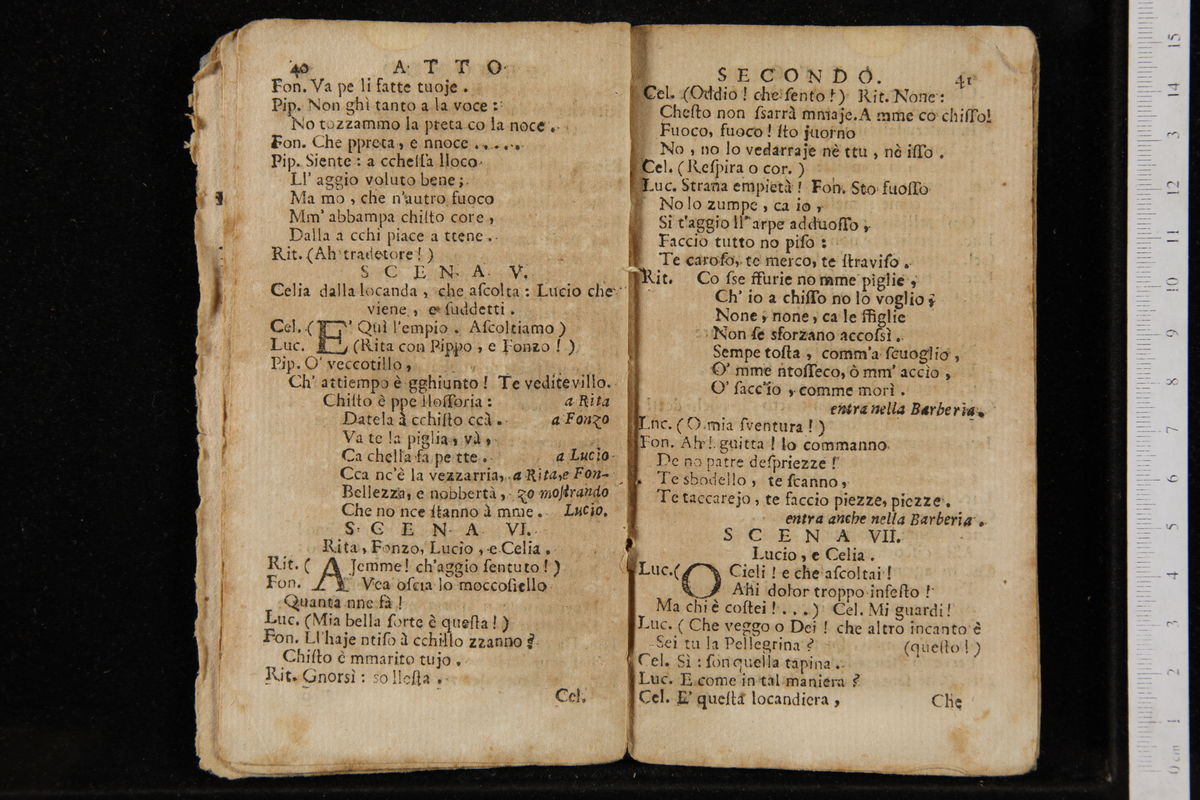 40 ATTO
Fon. Va pe li fatte tuoje.
Pip. Non ghì tanto a la voce:
No tozzammo la preta co la noce.
Fon. Che ppreta, e nnoce .....
Pip. Siente: a ccheſſa lloco
Ll' aggio voluto bene;
Ma mo, che n'autro fuoco
Mm' abbampa chiſto core,
Dalla a cchi piace a ttene.
Rit. (Ah tradetore!)
SCENA V.
Celia dalla locanda, che aſcolta: Lucio che
viene, e ſuddetti.
Cel. (E' Quì l'empio. Aſcoltiamo)
Luc. (Rita con Pippo, e Fonzo!)
Pip. O' veccotillo,
Ch' attiempo è gghiunto! Te veditevillo.
Chiſto è ppe lloſſoria: a Rita
Datela à cchiſto ccà. a Fonzo
Va te la piglia, và,
Ca cheſta fa pe tte. a Lucio
Cca nc'è la vezzarria, a Rita, e Fon-
Bellezza, e nobbertà, zo moſtrando
Che no nce ſtanno à mme. Lucio.
SCENA VI.
Rita, Fonzo, Lucio, e Celia.
Rit. (AJemme! ch'aggio ſentuto!)
Fon. Vea oſcia lo moccoſiello
Quanta nne fà!
Luc. (Mia bella ſorte è queſta!)
Fon. Ll'haje ntiſo à cchiſto zzanno?
Chiſto è mmarito tujo.
Rit. Gnorsì: ſo lleſta.
Cel.
SECONDO. 41
Cel. (Oddio! che ſento!) Rit. None:
Cheſto non ſſarrà mmaje. A mme co chiſſo!
Fuoco, fuoco! ſto juorno
No, no lo vedarraje nè ttu, nè iſſo.
Cel. (Reſpira o cor.)
Luc. Strana empietà! Fon. Sto fuoſſo
No lo zumpe, ca io,
Si t'aggio ll'arpe adduoſſo,
Faccio tutto no piſo:
Te caroſo, te merco, te ſtraviſo.
Rit. Co ſse ffurie no mme piglie,
Ch' io a chiſſo no lo voglio;
None, none, ca le ffiglie
Non ſe sforzano accoſsì.
Sempe toſta, comm'a ſcuoglio,
O' mme ntoſſeco, ò mm' accìo,
O' ſacc'io, comme morì.
entra nella Barberia.
Lnc. (O mia ſventura!)
Fon. Ah! guitta! lo commanno
De no patre deſpriezze!
Te sbodello, te ſcanno,
Te taccarejo, te faccio piezze, piezze.
entra anche nella Barberia.
SCENA VII.
Lucio, e Celia.
Luc. (O Cieli! e che aſcoltai!
Ahi dolor troppo infeſto!
Ma chi è coſtei!...) Cel. Mi guardi!
Luc. (Che veggo o Dei! che altro incanto è
Sei tu la Pellegrina? (queſto!)
Cel. Sì: ſon quella tapina.
Luc. E come in tal maniera?
Cel. E' queſta locandiera,
Che